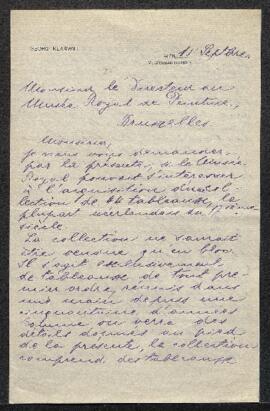 11 Septbre
Monsieur le Directeur du
Musée Royal de Peinture,
Bruxelles
Monsieur,
je viens vous demander
par la présente, si le Musée
Royal pourrait s'intéresser
à l'acquisition d'une col
lection de 44 tableaux, la
plupart néerlandais du 17ième
siècle.
La collection ne saurait
être vendue qu'en bloc.
Il s'agit exclusivement
de tableaux de tout pre
mier ordre, réunis dans
une main depuis une
cinquantaine d'années
comme on verra des
détails donnés au pied
de la présente, la collection
comprend des tableaux